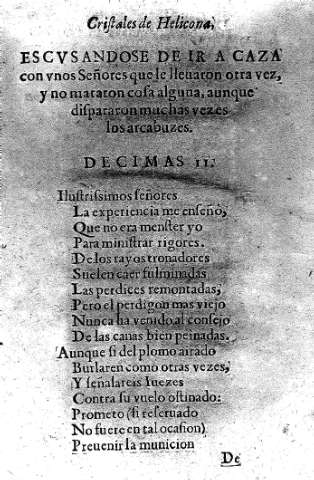 Cristales de Helicona,
ESCVSANDOSE DE IR A CAZA
con vnos Señores que le lleuaron otra vez,
y no mataron cosa alguna, aunque
dispararon muchas vezes
los arcabuzes.
DECIMAS II.
Ilustrissimos señores
La experiencia me enseñò,
Que no era menster yo
Para ministrar rigores.
De los rayos tronadores
Suelen caer fulminadas
Las perdices remontadas,
Pero el perdigon mas viejo
Nunca ha venido al consejo
De las canas bien peinadas.
Aunque si del plomo airado
Burlaren como otras vezes,
Y señalareis Iuezes
Contra su vuelo ostinado:
Prometo (si reseruado
No fuere en tal ocasion)
Preuenir la municion
De